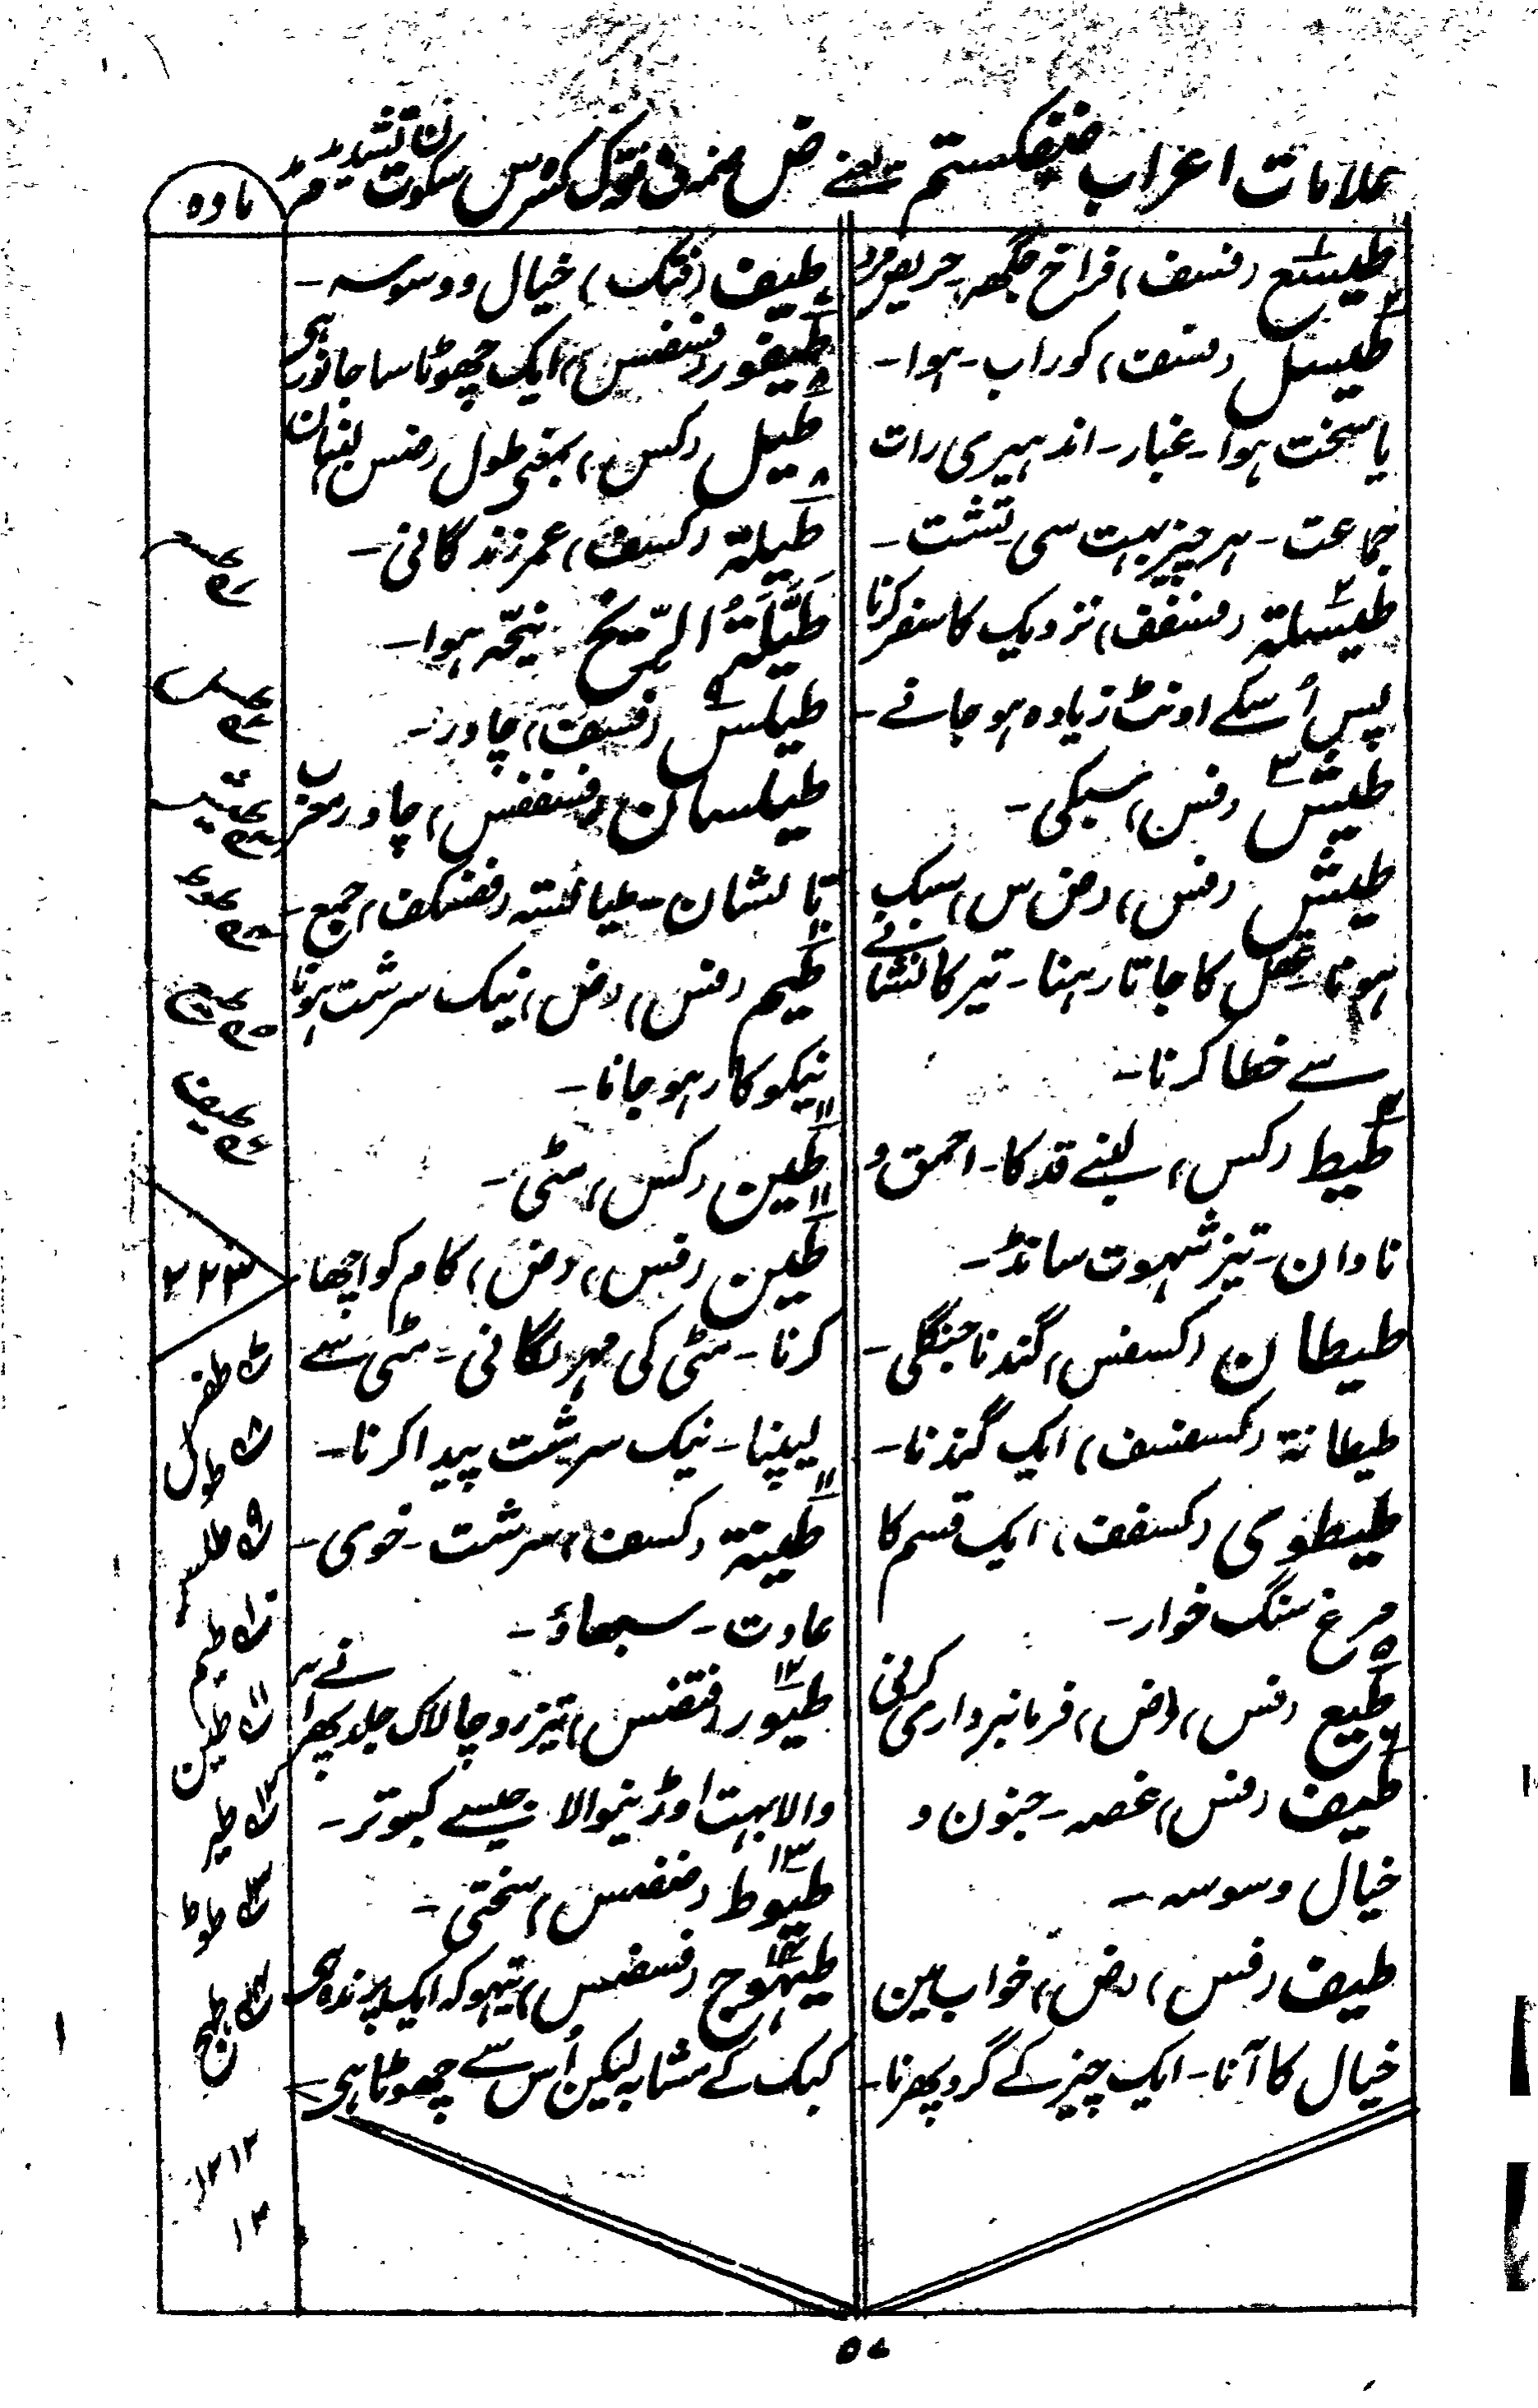 علامات اعراب ضفکستم یعنے ض ضمہ ف فتحہ ک کسرہ س سکون ت تشدید م مد
مادہ
طیسع (فسف) فراخ جگہہ۔ حریص مرد
طیسل (فسف) کوراب۔ ہوا۔
یا سخت ہوا۔ غبار۔ اندہیری رات
جماعت۔ ہر چیز بہت سی۔ تشت۔
طیسلة (فسففف) نزدیک کا سفر کرنا
پس اُسکے اونٹ زیادہ ہو جانے۔
طیش (فس) سبکی۔
طیش (فس) (ض س) سبک
ہونا عقل کا جاتا رہنا۔ تیر کا نشانے
سے خطا کرنا۔
طیط (کس) لنبے قد کا۔ احمق و
نادان۔ تیز شہوت سانڈ۔
طیطان (کسفس) گندنا جنگلی۔
طیطانة (کسفسف) ایک گندنا۔
طیطوی (کسفف) ایک قسم کا
مرغ سنگ خوار۔
طیع (فس) (ض) فرمانبرداری کرنی
طیف (فس) غصہ۔ جنون و
خیال وسوسہ۔
طیف (فس) (ض) خواب مین
خیال کا آنا۔ ایک چیز کے گرد پھرنا۔
طیف (فتک) خیال و وسوسہ۔
طیفور (فسفس) ایک چھوٹا سا جانور ہی
طیل (کس) بمعنی طول
طیلة (کسف) عمر زندگانی۔
طَیَّلَةُ الرِّیْحِ نیحّہ ہوا۔
طیلس (فسف) چادر۔
طیلسان (فسففس) چادر معرب
تالشان۔ طیالسة (ففسکف) جمع۔
طیم (فس) (ض) نیک سرشت ہونا
نیکوکار ہو جانا۔
طین (کس) مٹی۔
طین (فس) (ض) کام کو اچھا
کرنا۔ مٹی کی مہر لگانی۔ مٹی سے
لیپنا۔ نیک سرشت پیدا کرنا۔
طینة (کسف) سرشت۔ خوی۔
عادت۔ سبھاؤ۔
طیور (فتضس) تیز رو چالاک جلد پھر آنے
والا بہت اوڑنیوالا جیسے کبوتر۔
طیوط (ضفس) سختی۔
طیہوج (فسضس) تیہو کہ ایک پرندہ ہی
کبک کے مشابہ لیکن اُس سے چھوٹا ہی۔
۲۲۳
طفر
طول
طلس
طیم
طین
طیر
طوط
طہج
۱۲ ۱۳
۱۳
۵۷